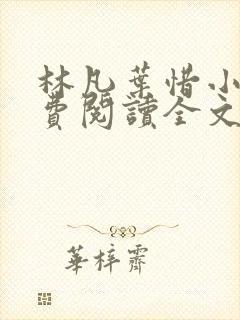 林凡葉惜小
費閱讀全文
華梓霽